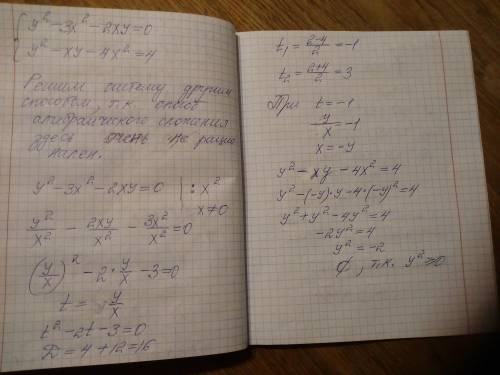 y² - 3x² - 2xy = 0
y² - xy - 4x² = 4
Решим систему другим
способом, т.к. способ
алгебраического сложения
здесь очень не рацио
нален.
y² - 3x² - 2xy = 0 | : x²
x ≠ 0
y²/x² - 2xy/x² - 3x²/x² = 0
(y/x)² - 2 * y/x - 3 = 0
t = y/x
t² - 2t - 3 = 0
D = 4 + 12 = 16
t₁ = (2-4)/2 = -1
t₂ = (2+4)/2 = 3
При t = -1
y/x = -1
x = -y
y² - xy - 4x² = 4
y² - (-y)·y - 4·(-y)² = 4
y² + y² - 4y² = 4
-2y² = 4
y² = -2
∅, т.к. y² ≥ 0